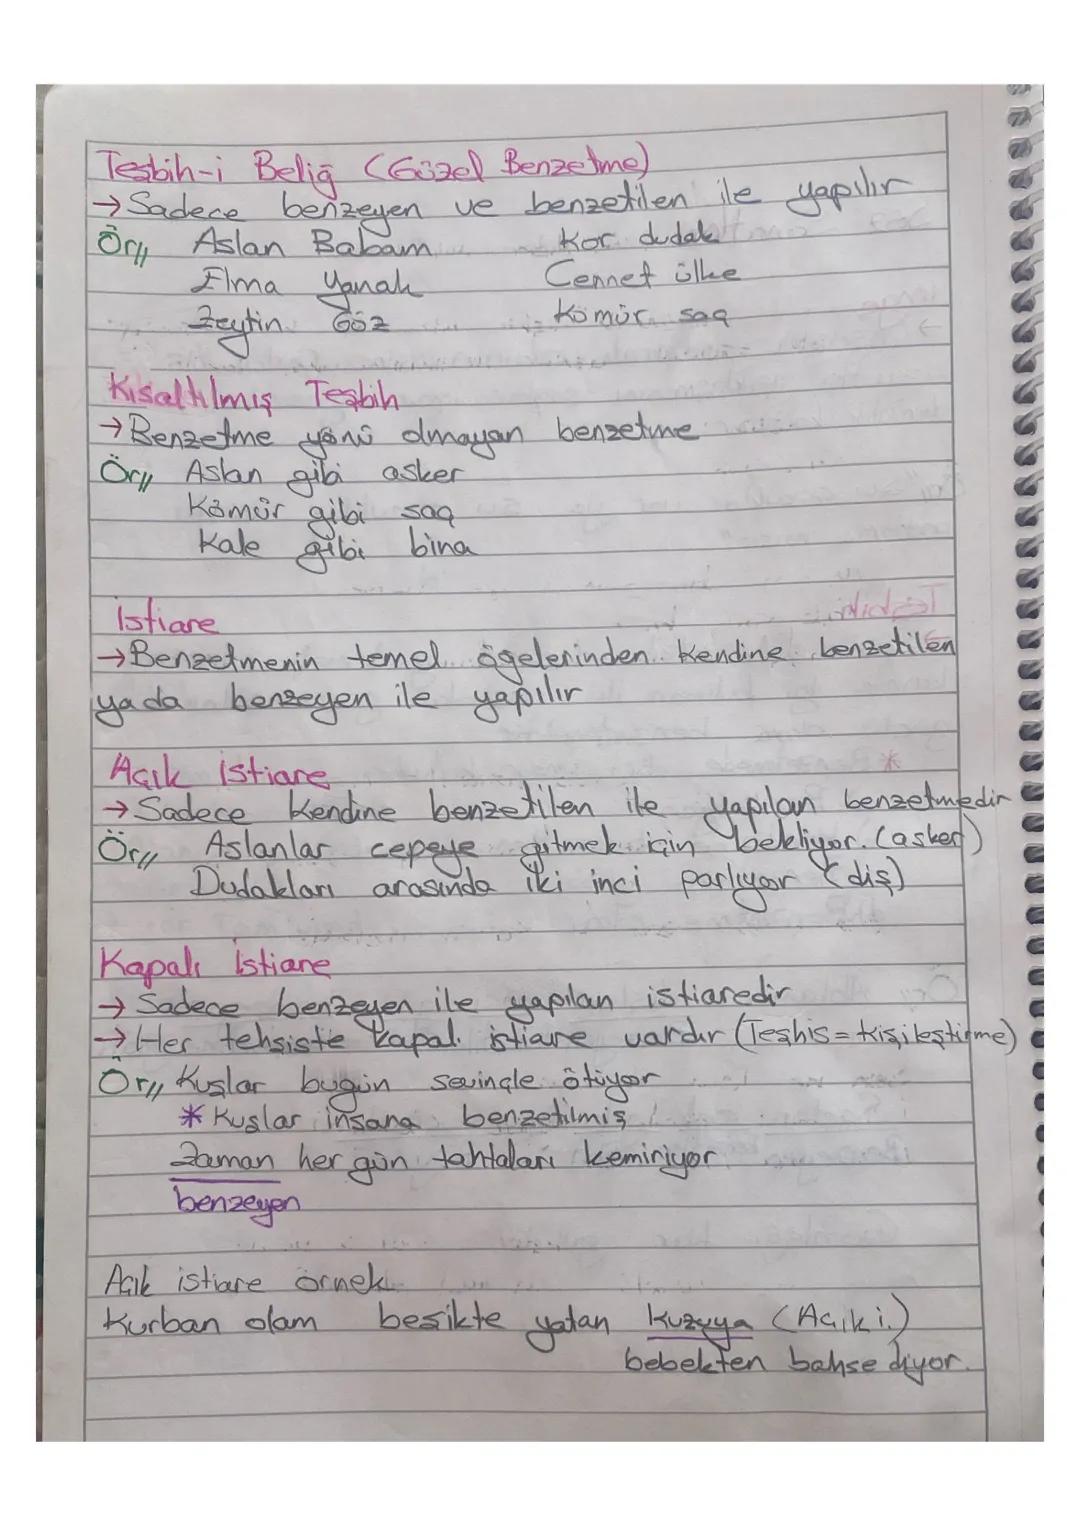 Teşbih-i Beliğ (Güzel Benzetme)
→ Sadece benzeyen ve benzetilen ile yapılır
Ör// Aslan Babam Kor dudak
Elma Yanak Cennet ülke
Zeytin Göz Kömür saç
Kısaltılmış Teşbih
→ Benzetme yönü olmayan benzetme
Ör// Aslan gibi asker
Kömür gibi saç
Kale gibi bina
İstiare
→ Benzetmenin temel ögelerinden kendine benzetilen
ya da benzeyen ile yapılır
Açık istiare
→ Sadece kendine benzetilen ile yapılan benzetmedir
Ör// Aslanlar cepeye gitmek için bekliyor. (asker)
Dudakları arasında iki inci parlıyor (diş)
Kapalı istiare
→ Sadece benzeyen ile yapılan istiaredir
→ Her tehsiste kapalı istiare vardır (Teşhis = kişileştirme)
Ör// Kuşlar bugün sevinçle ötüyor
* Kuşlar insana benzetilmiş
Zaman her gün tahtaları kemiriyor
benzeyen
Açık istiare örnek
Kurban olam beşikte yatan kuzuya (Açık i.)
bebekten bahsediyor.